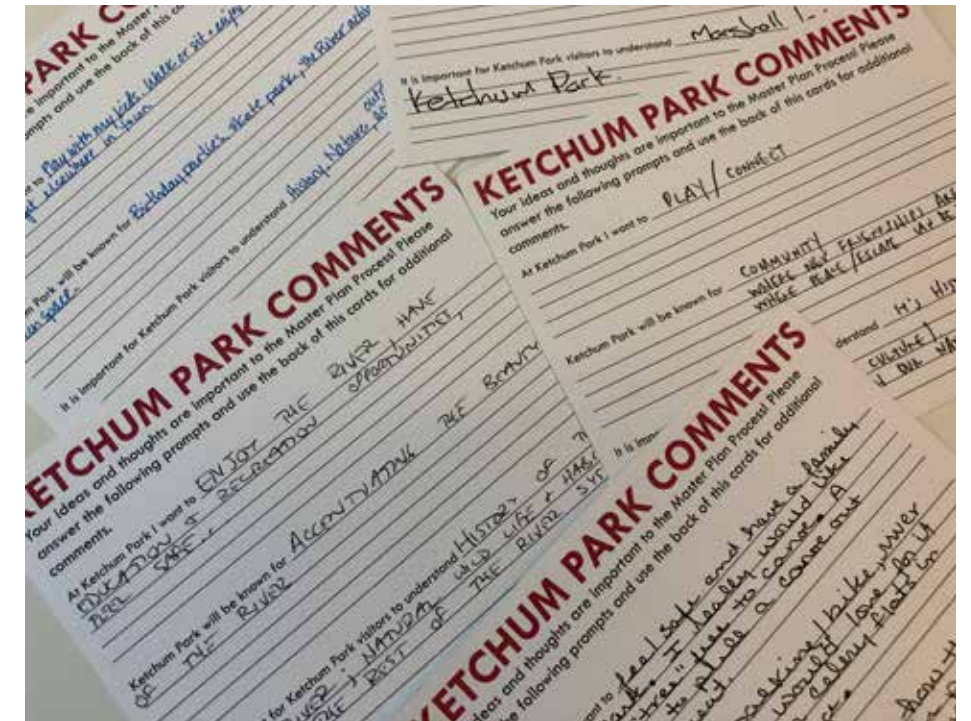 PARK CO
important to the Master P
mpts and use the back of this ca
to Play with my kids. Walk or sit + enjoy
elsewhere in town
Park will be known for Birthday parties, skate park, the River
en space.
It is important for Ketchum Park visitors to understand history, Nature,
It is important for Ketchum Park visitors to understand Marshall
Ketchum Park.
KETCHUM PARK COMMENTS
Your ideas and thoughts are important to the Master Plan Process! Please
answer the following prompts and use the back of this cards for additional
comments.
At Ketchum Park I want to PLAY / CONNECT
Ketchum Park will be known for COMMUNITY
WHERE NEW FRIENDSHIPS AND
derstand IT'S HIST
CULTURE /
It is impor
KETCHUM PARK COMMENTS
Your ideas and thoughts are important to the Master Plan Process! Please
answer the following prompts and use the back of this cards for additional
comments.
At Ketchum Park I want to ENJOY THE RIVER, HAVE
EDUCATION + RECREATION OPPORTUNITIES,
FEEL SAFE..
Ketchum Park will be known for ACCENTUATING THE BEAUTY
OF THE RIVER
for Ketchum Park visitors to understand HISTORY OF T
RIVER; NATURAL WILD LIFE + HABI
THE REST OF THE RIVER SYS
KETCHUM PARK COMMENTS
deas and thoughts are important to the Master Plan Process! Please
the following prompts and use the back of this cards for additional
nt to feel safe and have a family
I really would like
free to canoe. A
to pull a canoe out
walking / bike, river
would love for it
how th